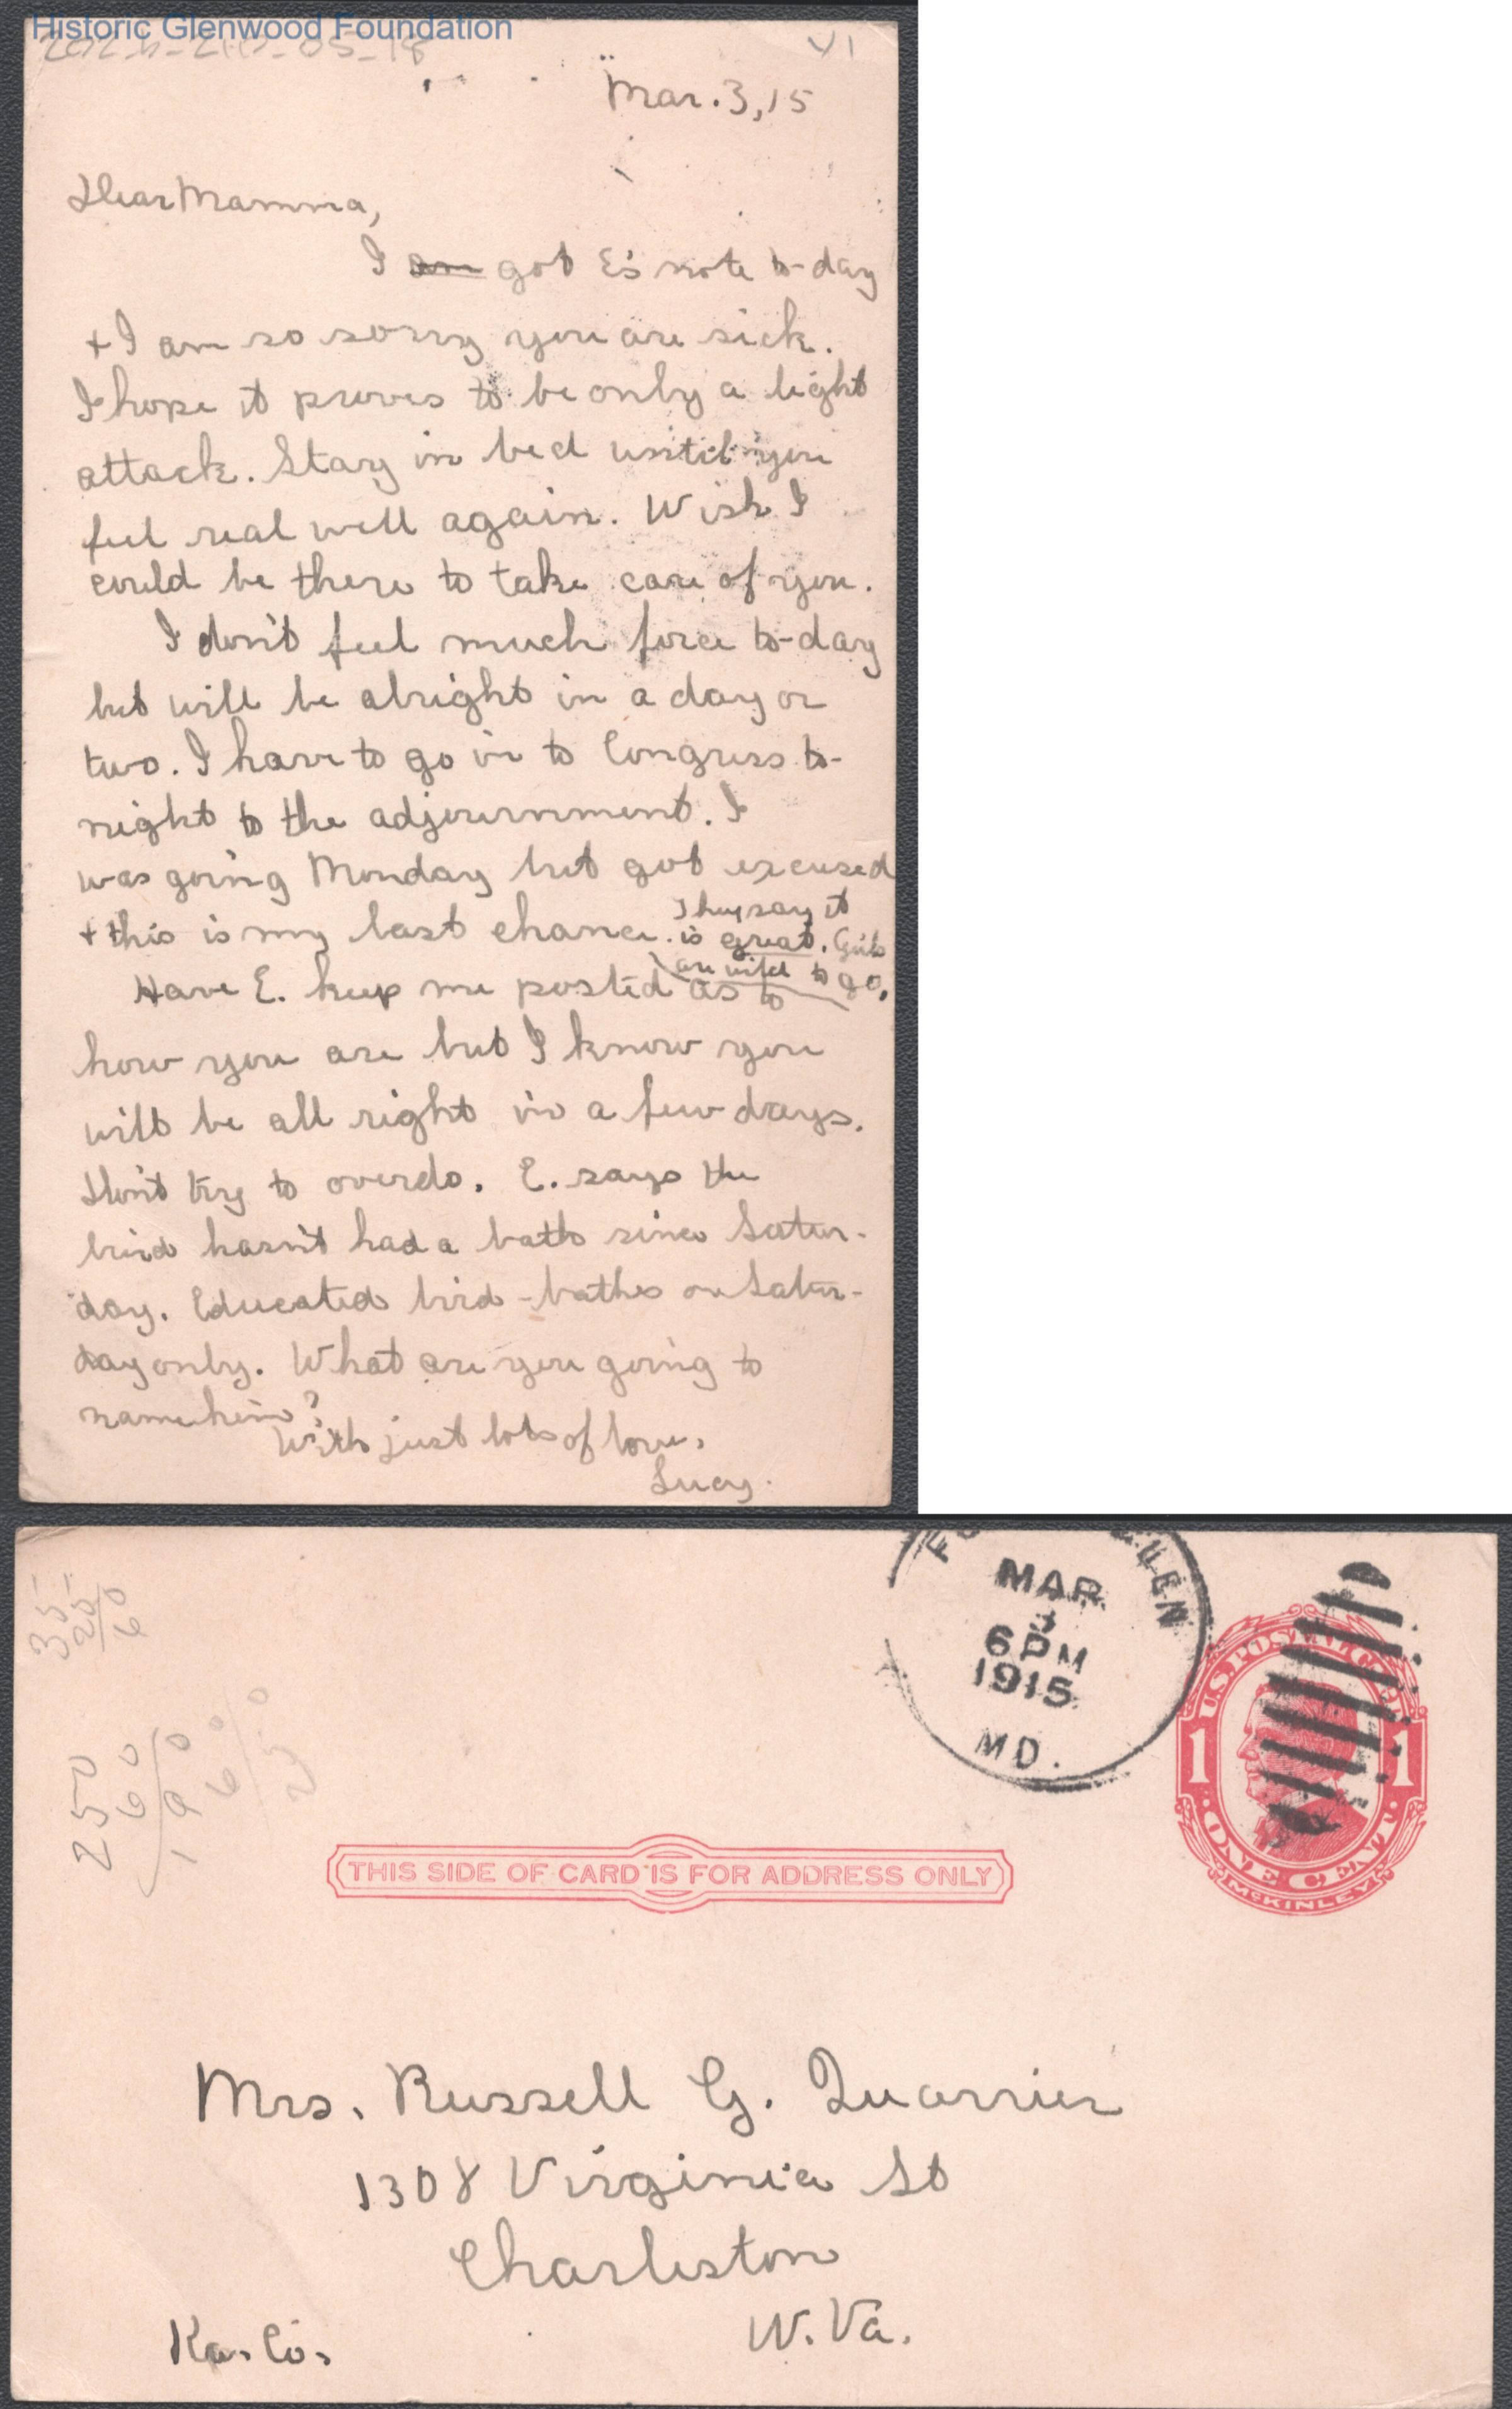 Historic Glenwood Foundation
VI
Mar. 3, 15
Dear Mamma,
I am got E's note to-day
+ I am so sorry you are sick.
I hope it proves to be only a light
attack. Stay in bed until you
feel real well again. Wish I
could be there to take care of you.
I don't feel much force to-day
but will be alright in a day or
two. I have to go in to Congress to-
night to the adjournment. I
was going Monday but got excused
+ this is my last chance. They say it
is great. Girls
are wild to go.
Have E. keep me posted as to
how you are but I know you
will be all right in a few days.
Don't try to overdo. E. says the
bird hasn't had a bath since Satur-
day. Educated bird - bathes on Satur-
day only. What are you going to
name him?
With just lots of love,
Lucy.
35
25
60
250
60
190
60
MAR
3
6 PM
1915
MD.
U.S. POSTAL CARD
1 1
ONE CENT
McKINLEY
THIS SIDE OF CARD IS FOR ADDRESS ONLY
Mrs. Russell G. Quarrier
1308 Virginia St
Charleston
W. Va.
Ka. Co.